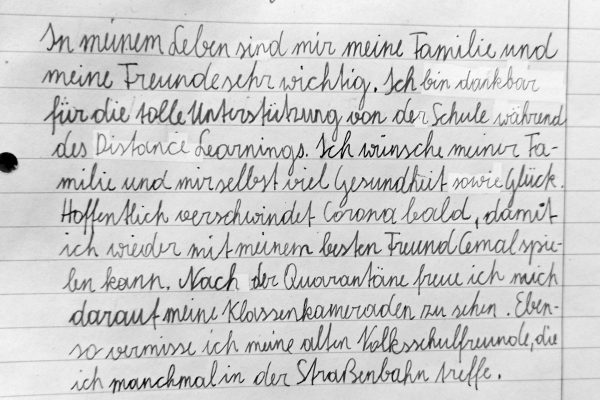 In meinem Leben sind mir meine Familie und
meine Freunde sehr wichtig. Ich bin dankbar
für die tolle Unterstützung von der Schule während
des Distance Learnings. Ich wünsche meiner Fa-
milie und mir selbst viel Gesundheit sowie Glück.
Hoffentlich verschwindet Corona bald, damit
ich wieder mit meinem besten Freund Cemal spie-
len kann. Nach der Quarantäne freue ich mich
darauf meine Klassenkameraden zu sehen. Eben-
so vermisse ich meine alten Volksschulfreunde, die
ich manchmal in der Straßenbahn treffe.